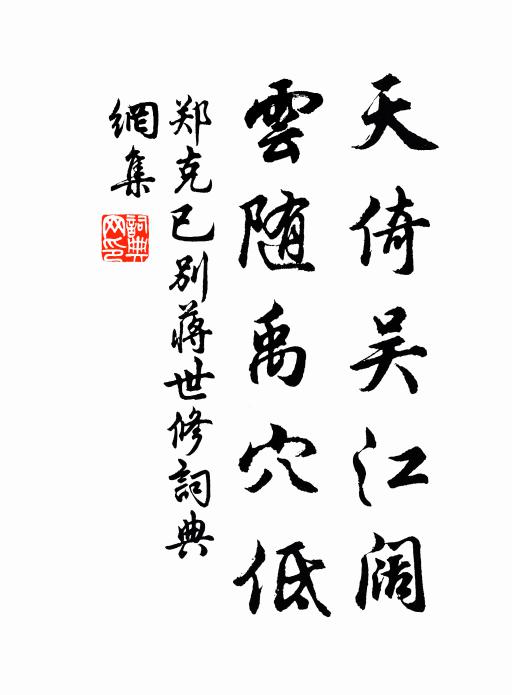 天倚吴江阔
雲随禹穴低
郑克已别蒋世修詞典
網集
詞典
网印